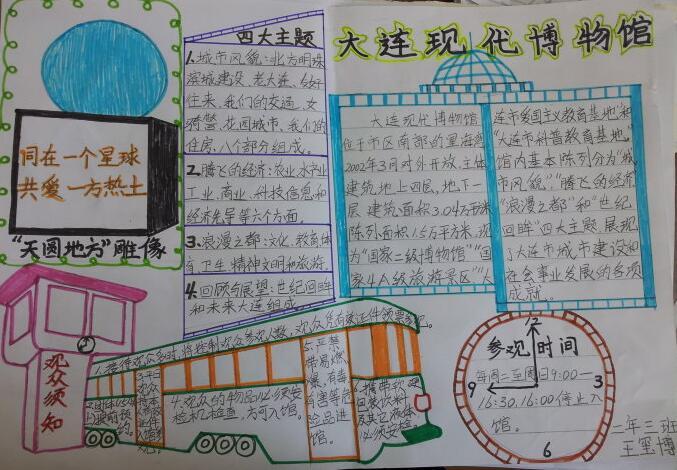 大连现代博物馆
四大主题
1.城市风貌:北方明珠
滨城建设、老大连、今好
往来、我们的交通、女
骑警、花园城市、我们的
住房、八个部分组成。
2.腾飞的经济:农业、水产业
工业、商业、科技信息和
经济先导等六个方面。
3.浪漫之都:文化、教育体
育、卫生、精神文明和旅游
4.回顾与展望:世纪回眸
和未来大连组成
同在一个星球
共爱一方热土
“天圆地方”雕像
大连现代博物馆
位于市区南部的星海湾
2002年3月对外开放、主体
建筑地上四层、地下一
层、建筑面积3.04万平米
陈列面积1.6万平方米、现
为“国家二级博物馆”“国
家4A级旅游景区”“大
连市爱国主义教育基地”和
“大连市科普教育基地。”
馆内基本陈列分为“城
市风貌”“腾飞的经济”
“浪漫之都”和“世纪
回眸”四大主题、展现
了大连市城市建设和
社会事业发展的各项
成就。
观众须知
1.接待观众多时,将控制观众参观人数,观众凭有效证件领票参观。
4.观众的物品必须安
检机检查,方可入馆。
5.严禁
带易燃
爆、有毒
有害等危
险品进
馆。
6.携带
饮料
及其它液体
必须安检。
参观时间
12
3
6
9
每周二至周日9:00—
16:30.16:00停止入
馆。
二年三班
王玺博